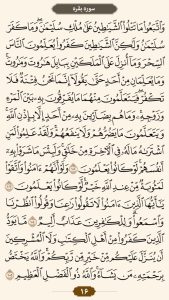 سوره بقره
وَٱتَّبَعُوا۟ مَا تَتْلُوا۟ ٱلشَّيَـٰطِينُ عَلَىٰ مُلْكِ سُلَيْمَـٰنَ ۖ وَمَا كَفَرَ
سُلَيْمَـٰنُ وَلَـٰكِنَّ ٱلشَّيَـٰطِينَ كَفَرُوا۟ يُعَلِّمُونَ ٱلنَّاسَ
ٱلسِّحْرَ وَمَآ أُنزِلَ عَلَى ٱلْمَلَكَيْنِ بِبَابِلَ هَـٰرُوتَ وَمَـٰرُوتَ ۚ
وَمَا يُعَلِّمَانِ مِنْ أَحَدٍ حَتَّىٰ يَقُولَآ إِنَّمَا نَحْنُ فِتْنَةٌ فَلَا
تَكْفُرْ ۖ فَيَتَعَلَّمُونَ مِنْهُمَا مَا يُفَرِّقُونَ بِهِۦ بَيْنَ ٱلْمَرْءِ
وَزَوْجِهِۦ ۚ وَمَا هُم بِضَآرِّينَ بِهِۦ مِنْ أَحَدٍ إِلَّا بِإِذْنِ ٱللَّهِ ۚ
وَيَتَعَلَّمُونَ مَا يَضُرُّهُمْ وَلَا يَنفَعُهُمْ ۚ وَلَقَدْ عَلِمُوا۟ لَمَنِ
ٱشْتَرَىٰهُ مَا لَهُۥ فِى ٱلْـَٔاخِرَةِ مِنْ خَلَـٰقٍ ۚ وَلَبِئْسَ مَا شَرَوْا۟ بِهِۦٓ
أَنفُسَهُمْ ۚ لَوْ كَانُوا۟ يَعْلَمُونَ ۝١٠٢ وَلَوْ أَنَّهُمْ ءَامَنُوا۟ وَٱتَّقَوْا۟
لَمَثُوبَةٌ مِّنْ عِندِ ٱللَّهِ خَيْرٌ ۖ لَّوْ كَانُوا۟ يَعْلَمُونَ ۝١٠٣
يَـٰٓأَيُّهَا ٱلَّذِينَ ءَامَنُوا۟ لَا تَقُولُوا۟ رَٰعِنَا وَقُولُوا۟ ٱنظُرْنَا
وَٱسْمَعُوا۟ ۗ وَلِلْكَـٰفِرِينَ عَذَابٌ أَلِيمٌ ۝١٠٤ مَّا يَوَدُّ
ٱلَّذِينَ كَفَرُوا۟ مِنْ أَهْلِ ٱلْكِتَـٰبِ وَلَا ٱلْمُشْرِكِينَ
أَن يُنَزَّلَ عَلَيْكُم مِّنْ خَيْرٍ مِّن رَّبِّكُمْ ۗ وَٱللَّهُ يَخْتَصُّ
بِرَحْمَتِهِۦ مَن يَشَآءُ ۚ وَٱللَّهُ ذُو ٱلْفَضْلِ ٱلْعَظِيمِ ۝١٠٥
١۶